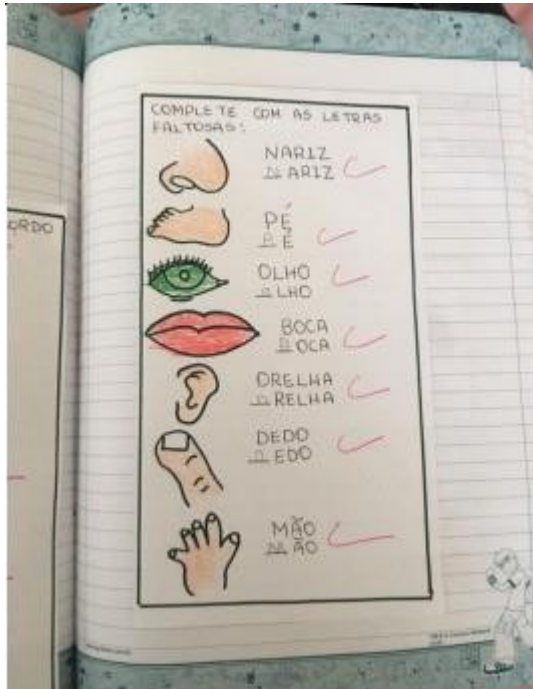 ORDO
COMPLETE COM AS LETRAS
FALTOSAS:
NARIZ
NARIZ
PÉ
PÉ
OLHO
OLHO
BOCA
BOCA
ORELHA
ORELHA
DEDO
DEDO
MÃO
MÃO